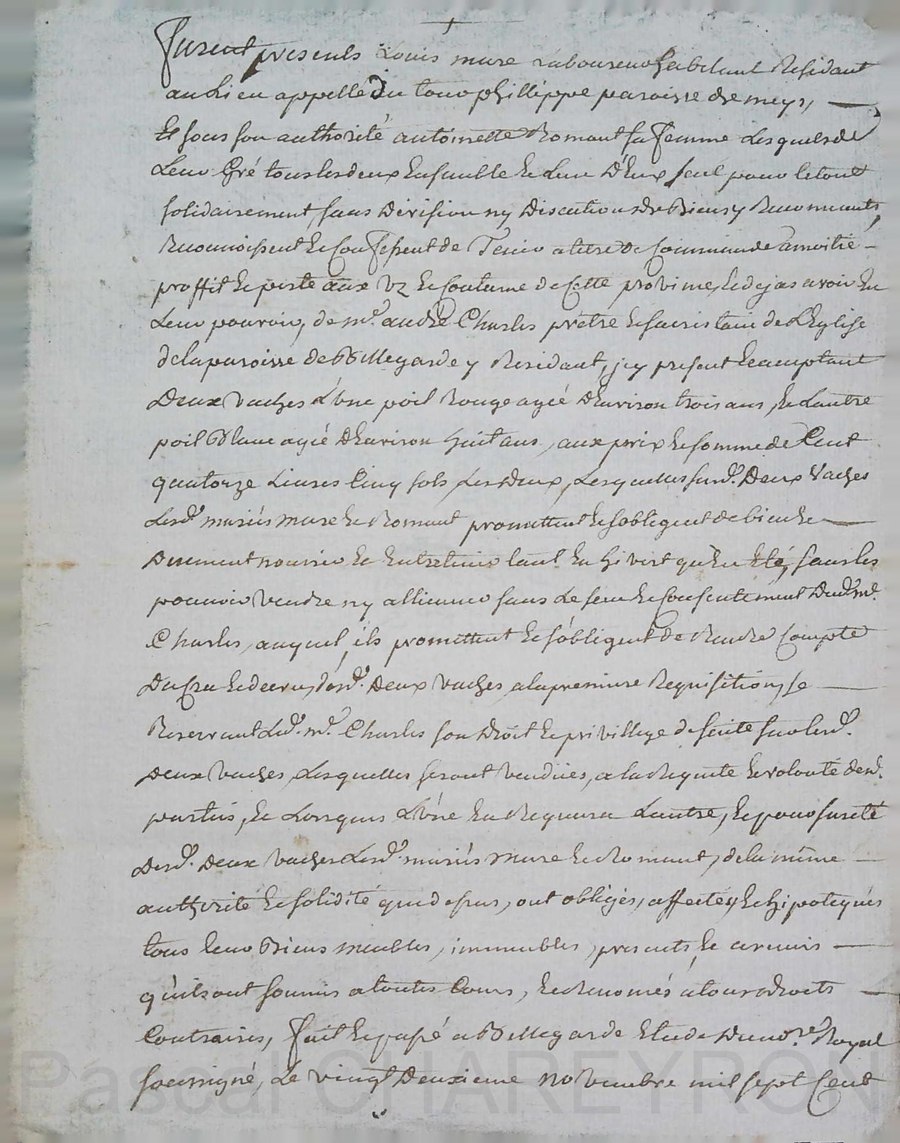 Furent presents Louis mure Laboureur habitant Residant
au Lieu appellé du touophillippe paroisse de meys,
Et sous son authorité antoinette Romant sa femme Lesquels de
Leur Gré tous les deux Ensemble et L'un D'Eux seul pour le tout
solidairement sans Division ny Discution de Biens y Renonceants,
Reconnoissent et Confessent de Tenir a titre de Commande a moitié
proffit et perte aux uz et Coutume de Cette province, et deja avoir En
Leur pouvoir, de mr. andré Charles prêtre et sacristain de L'Eglise
de la paroisse de Bellegarde y Residant, icy present et acceptant
Deux Vaches L'une poil Rouge agée D'Environ trois ans, et L'autre
poil Blanc agée D'Environ huit ans, aux prix et somme de Cent
quatorze Livres Cinq sols Les deux, Lesquelles susd. Deux Vaches
Lesd. mariés mure et Romant promettent et s'obligent de bien et
Duement nourrir et Entretenir tant En hivert qu'En Eté, sans les
pouvoir Vendre ny alliener sans Le sceu et Consentement Dud. mr.
Charles, auquel, ils promettent et s'obligent de Rendre Compte
Du Cru et decru desd. Deux Vaches, a la premiere Requisition, se
Reservant Led. mr. Charles son Droit et privillege de suite sur lesd.
Deux Vaches, Lesquelles seront Vendües, a la Requete et volonté desd.
parties, et Lorsque L'une En Requerra L'autre, et pour sureté
Desd. Deux Vaches Lesd. mariés mure et Romant, de la même
authorité et solidité que dessus, ont obligés, affectés, et hipotequés
tous leur Biens meubles, immeubles, presents et avenir
qu'ils ont soumis a toutes Cours, et Renoncés a tous droits
Contraires, fait et passé a Bellegarde Etude Du nore. Royal
soussigné, Le vingt Deuxieme novembre mil sept Cent
Pascal CHAREYRON